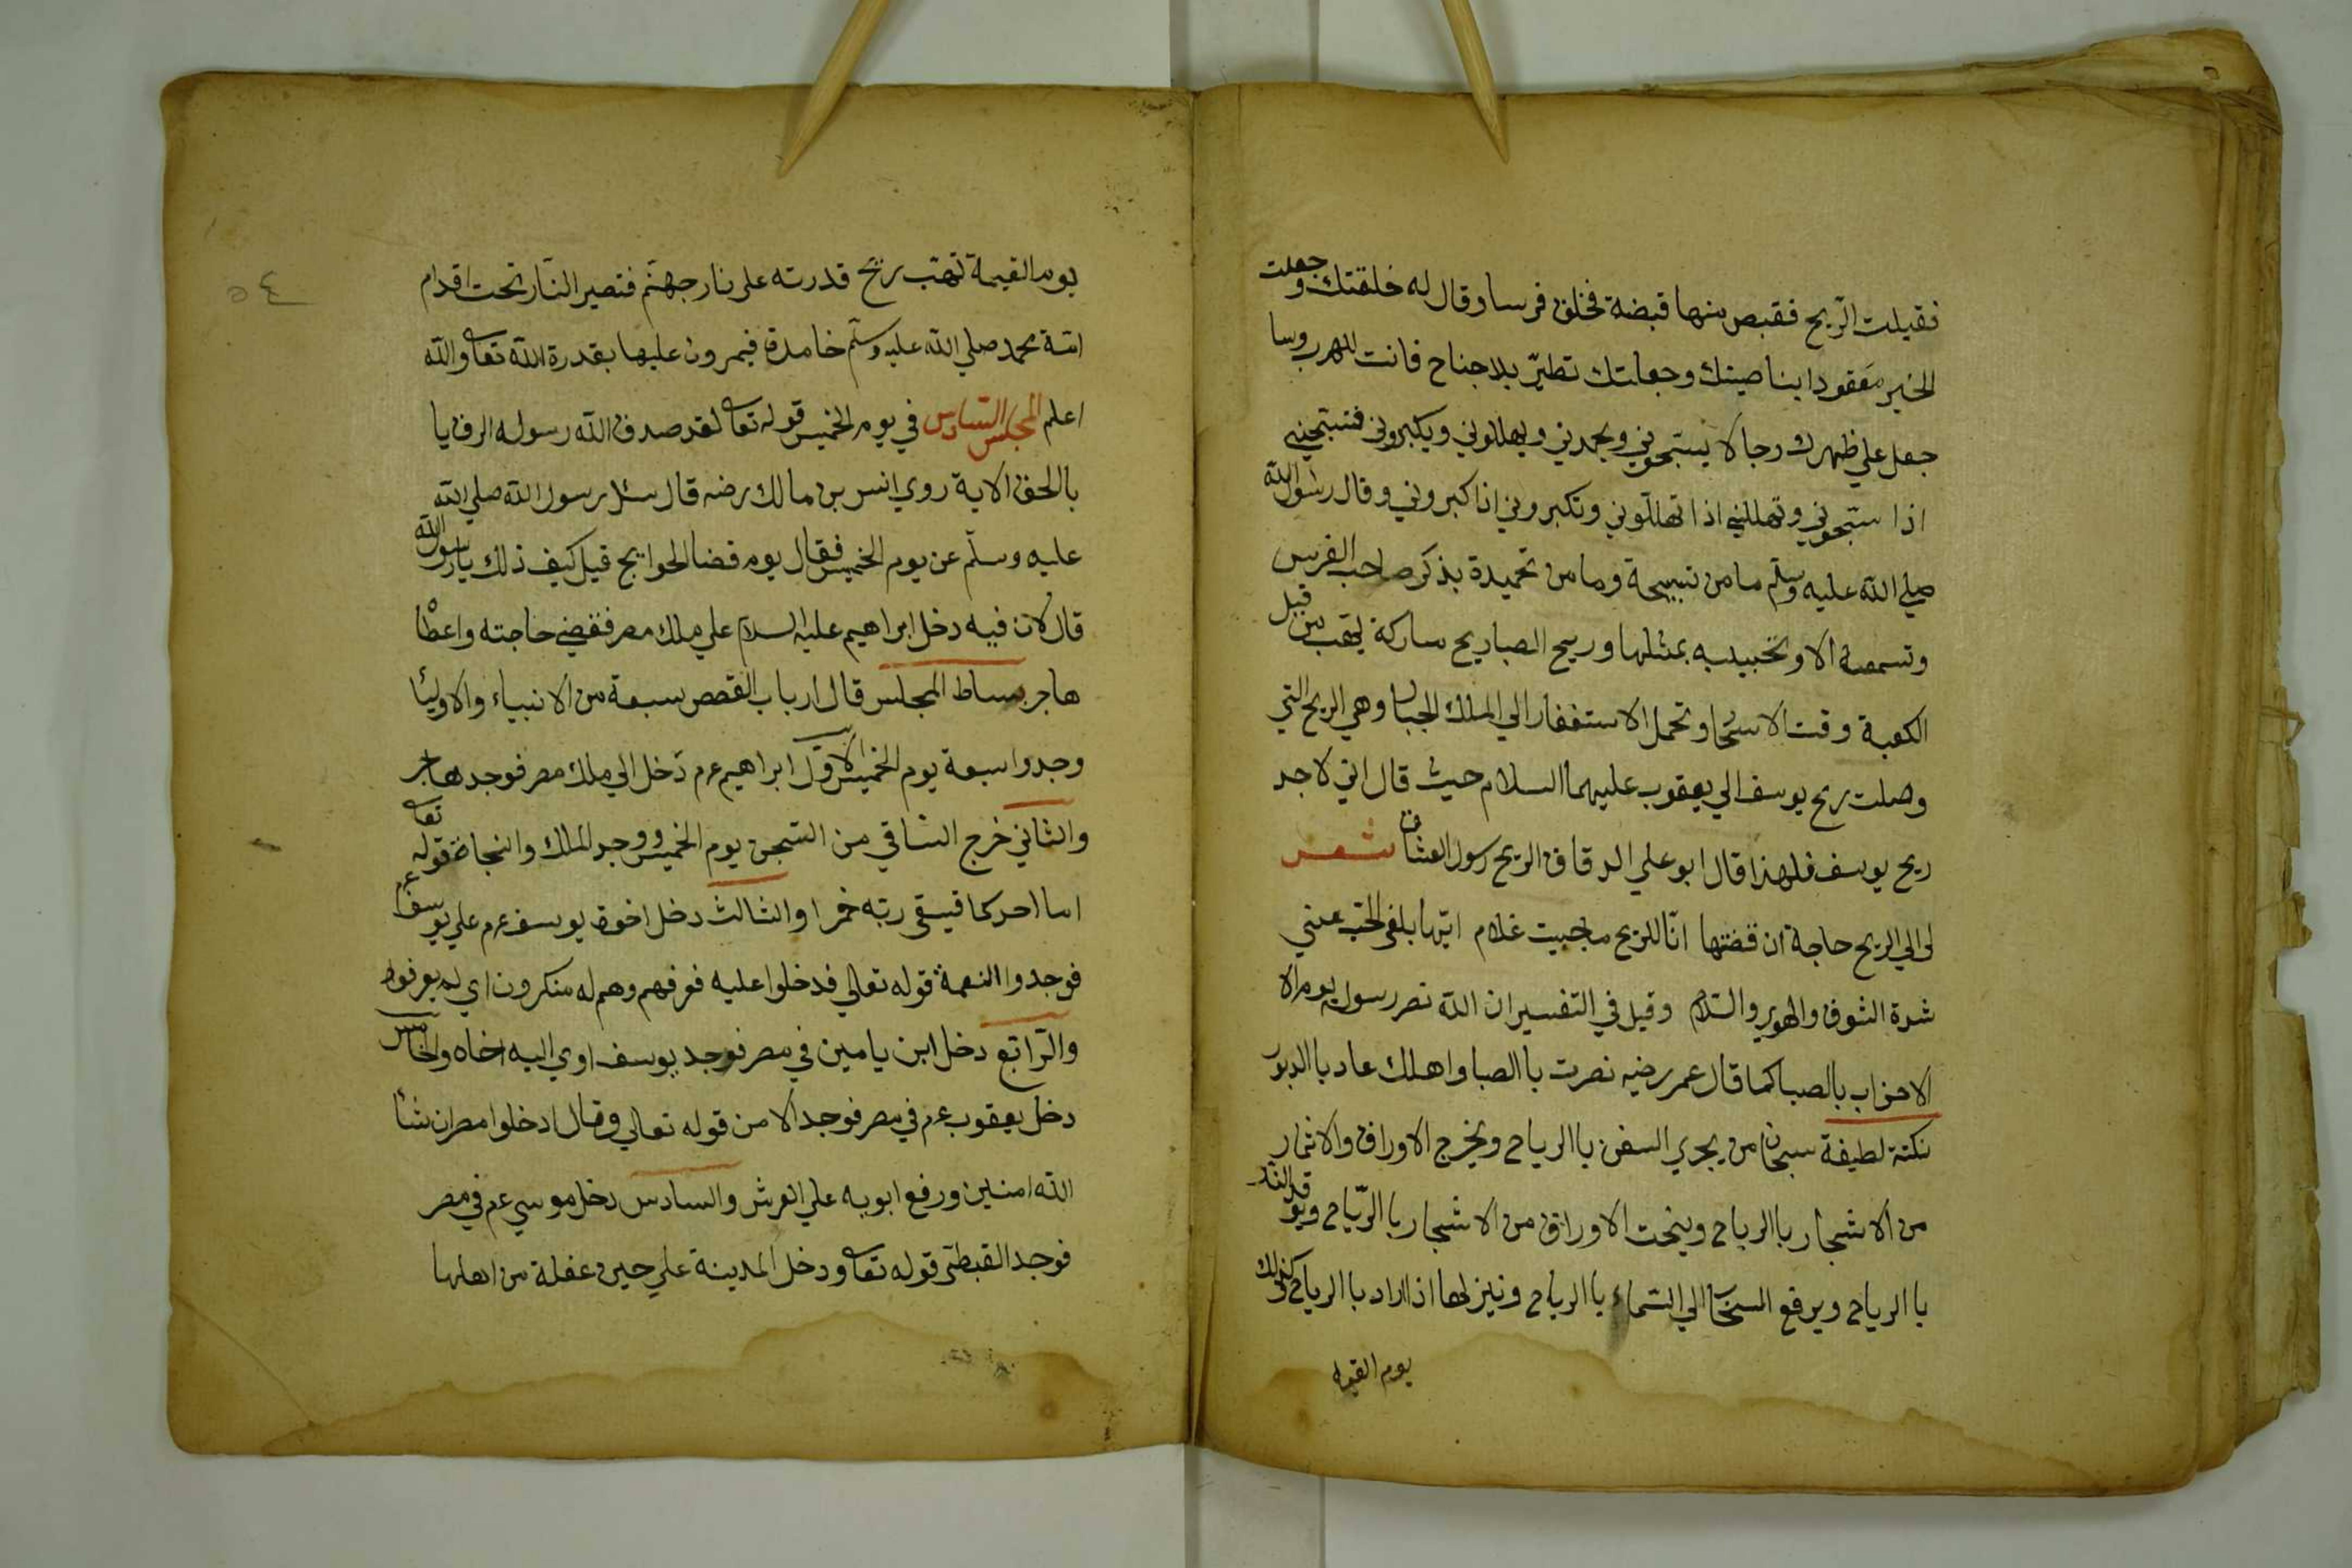 فقبلت الريح فقبض منها قبضة فخلق فرسا وقال له خلقتك وجعلت
الخير معقودا بناصيتك وجعلتك تطير بلا جناح فانت للهرب وسا
جعل علي ظهرك رجالا يستبحوني ويحمدني ويهللوني ويكبروني فتستبحني
اذا ستبحوني وتهللني اذا تهللوني وتكبروني اذا كبروني وقال رسول الله
صلي الله عليه وسلم ما من تسبيحة وما من تحميدة يذكر صاحب الفرس
وتسمعه الا وتجيبه بمثلها وريح الصبا ريح مباركة يهب من قبل
الكعبة وقت الاسحار وتحمل الاستغفار الي الملك الجبار وهي الريح التي
وصلت ريح يوسف الي يعقوب عليهما السلام حيث قال اني لاجد
ريح يوسف فلهذا قال ابو علي الدقاق الريح رسول العشاق شعر
لي الي الريح حاجة ان قضتها انا للريح ما حييت غلام ايها بلغي الحب عني
شدة الشوق والهوي والسلام وقيل في التفسير ان الله نصر رسوله يوم الا
الاحزاب بالصبا كما قال عمر رضيه نصرت باالصبا واهلك عاد باالدبور
نكتة لطيفة سبحان من يجري السفن باالرياح ويخرج الاوراق والاثمار
من الاشجار باالرياح وينحت الاوراق من الاشجار باالرياح ويوقد النار
باالرياح ويرفع السحاب الي السماء باالرياح وينزلها اذا اراد باالرياح وكذلك
يوم القيمة
٥٤
يوم القيمة تهب ريح قدرته علي نار جهنم فتصير النار تحت اقدام
امة محمد صلي الله عليه وسلم خامدة فيمرون عليها بقدرة الله تعا والله
اعلم المجلس السادس في يوم الخميس قوله تعا لقد صدق الله رسوله الرؤيا
بالحق الاية روي انس بن مالك رضه قال سئل رسول الله صلي الله
عليه وسلم عن يوم الخميس فقال يوم قضا الحوايج قيل كيف ذلك يا رسول الله
قال لان فيه دخل ابراهيم عليه السلام علي ملك مصر فقضي حاجته واعطاه
هاجر بساط المجلس قال ارباب القصص سبعة من الانبياء والاوليا
وجدوا سبعة يوم الخميس الاول ابراهيم عم دخل الي ملك مصر فوجد هاجر
والثاني خرج الساقي من السجن يوم الخميس ووجد الملك والنجاة قوله تعا
اما احدكما فيسقي ربه خمرا والثالث دخل اخوة يوسف عم علي يوسف عم
فوجدوا النعمة قوله تعالي فدخلوا عليه فعرفهم وهم له منكرون اي لم يعرفوه
والرابع دخل ابن يامين في مصر فوجد يوسف اوي اليه اخاه والخامس
دخل يعقوب عم في مصر فوجد الامن قوله تعالي وقال ادخلوا مصر ان شا
الله امنين ورفع ابويه علي العرش والسادس دخل موسي عم في مصر
فوجد القبطي قوله تعا ودخل المدينة علي حين غفلة من اهلها